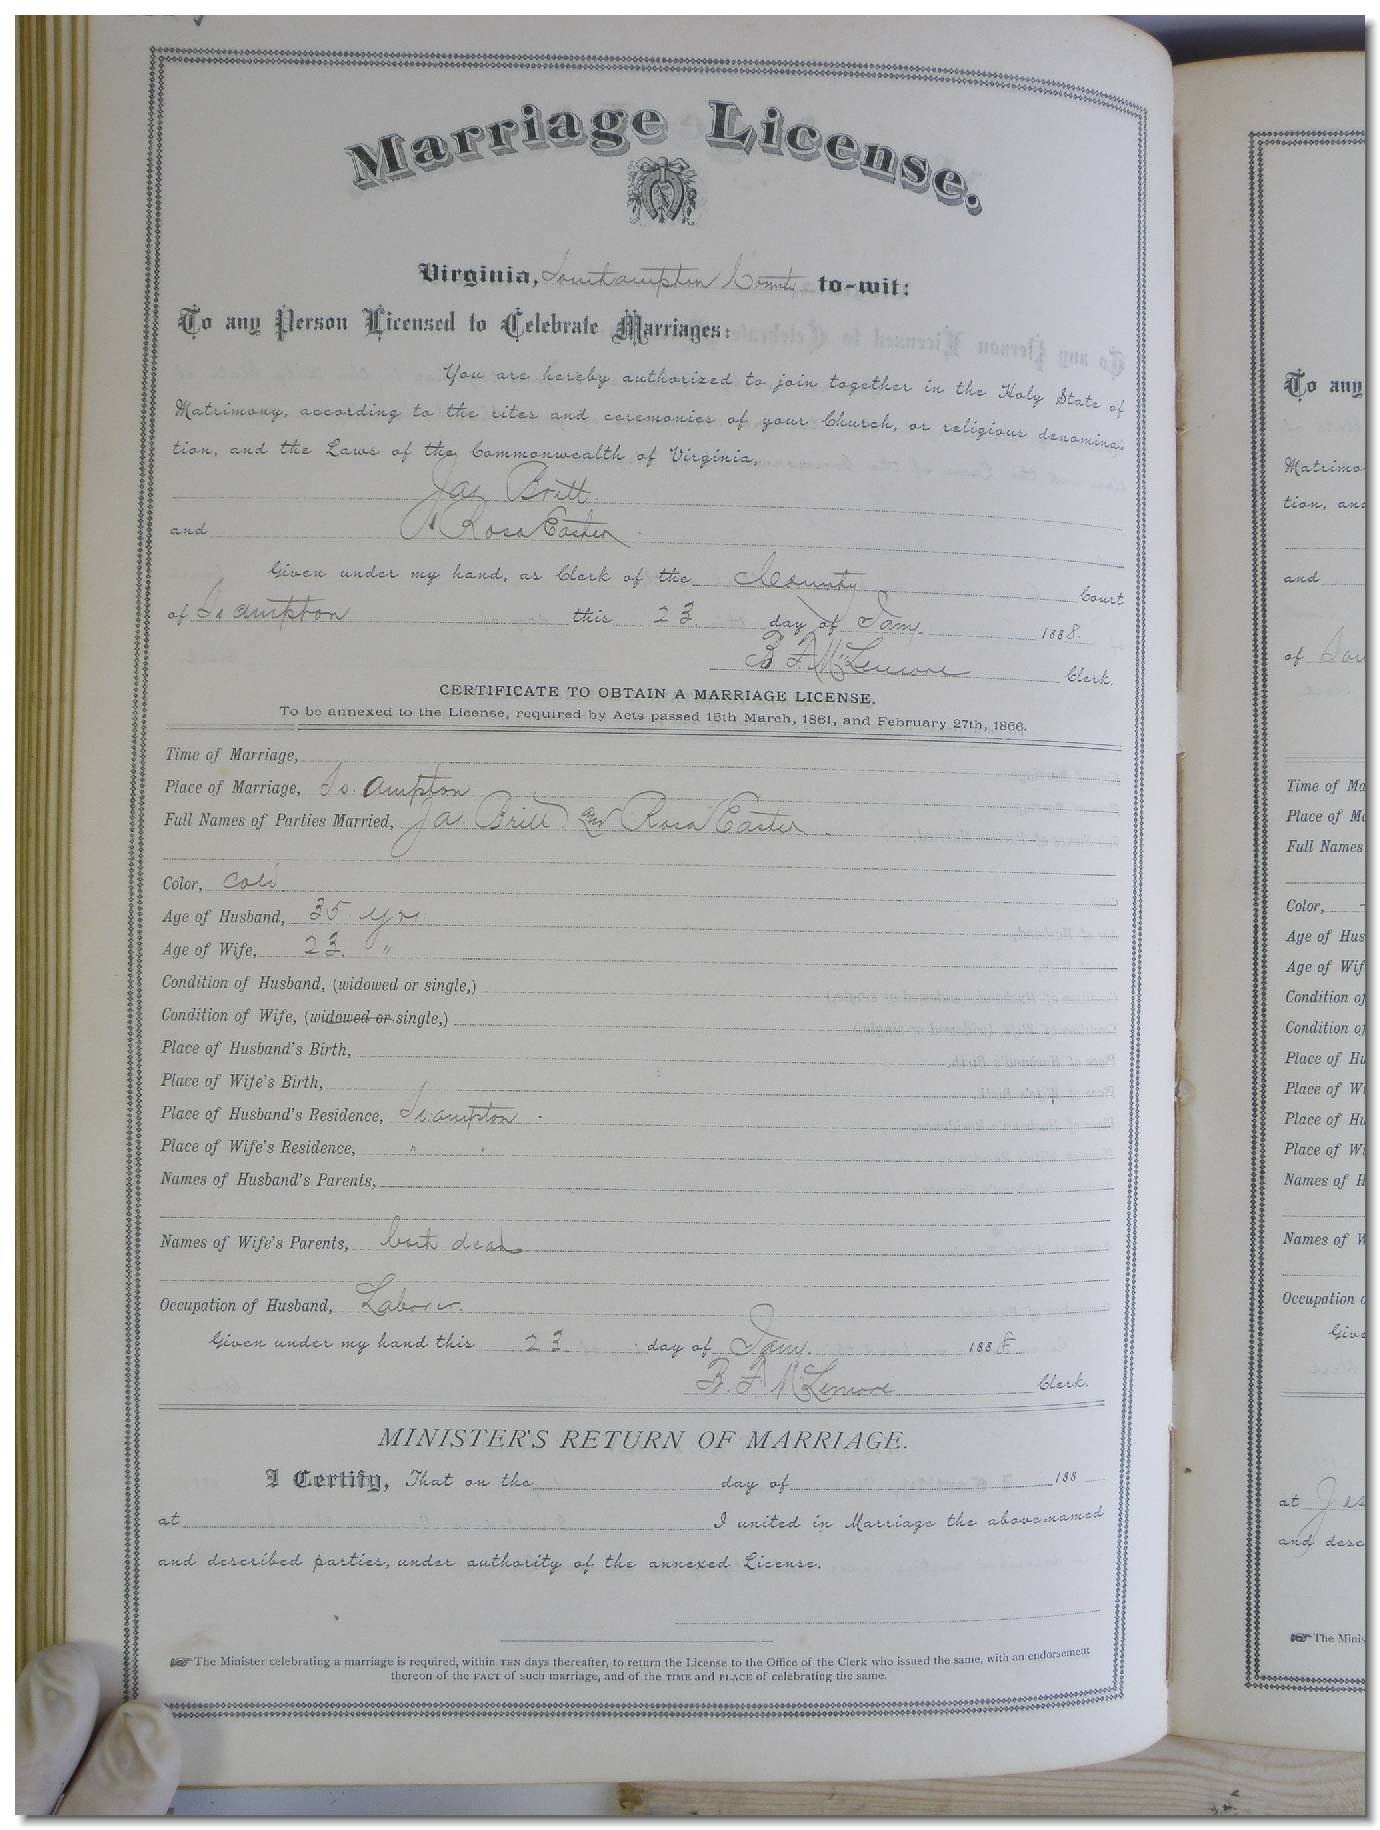 Marriage License.
Virginia, Southampton County to-wit:
To any Person Licensed to Celebrate Marriages:
You are hereby authorized to join together in the Holy State of
Matrimony, according to the rites and ceremonies of your Church, or religious denomina-
tion, and the Laws of the Commonwealth of Virginia,
Jas Britt
and Rosa Easter
Given under my hand, as Clerk of the County Court
of So ampton this 23 day of Jany 1888.
B F McLemore Clerk.
CERTIFICATE TO OBTAIN A MARRIAGE LICENSE.
To be annexed to the License, required by Acts passed 15th March, 1861, and February 27th, 1866.
Time of Marriage,
Place of Marriage, So. ampton
Full Names of Parties Married, Jas Britt and Rosa Easter
Color, Cold
Age of Husband, 35 yrs
Age of Wife, 23. "
Condition of Husband, (widowed or single,)
Condition of Wife, (widowed or single,)
Place of Husband's Birth,
Place of Wife's Birth,
Place of Husband's Residence, So. ampton -
Place of Wife's Residence, " "
Names of Husband's Parents,
Names of Wife's Parents, both dead
Occupation of Husband, Laborer.
Given under my hand this 23 day of Jany. 1888
B. F. McLemore Clerk.
MINISTER'S RETURN OF MARRIAGE.
I Certify, That on the day of 188
at I united in Marriage the above-named
and described parties, under authority of the annexed License.
The Minister celebrating a marriage is required, within TEN days thereafter, to return the License to the Office of the Clerk who issued the same, with an endorsement
thereon of the FACT of such marriage, and of the TIME and PLACE of celebrating the same.
To any
Matrimo
tion, and
and
of Sou
Time of Ma
Place of Ma
Full Names
Color,
Age of Hus
Age of Wif
Condition of
Condition of
Place of Hu
Place of Wi
Place of Hu
Place of Wi
Names of H
Names of W
Occupation o
Give
at Jes
and desc
The Minis